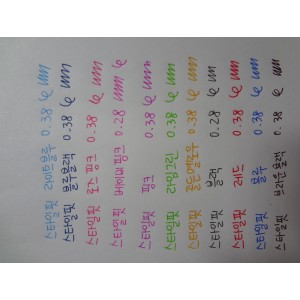 스타일핏 라이트블루 0.38
스타일핏 블루블랙 0.38
스타일핏 로즈 핑크 0.38
스타일핏 베이비 핑크 0.38
스타일핏 핑크 0.38
스타일핏 라임그린 0.38
스타일핏 골든옐로우 0.38
스타일핏 블랙 0.28
스타일핏 레드 0.38
스타일핏 블루 0.38
스타일핏 브라운블랙 0.38